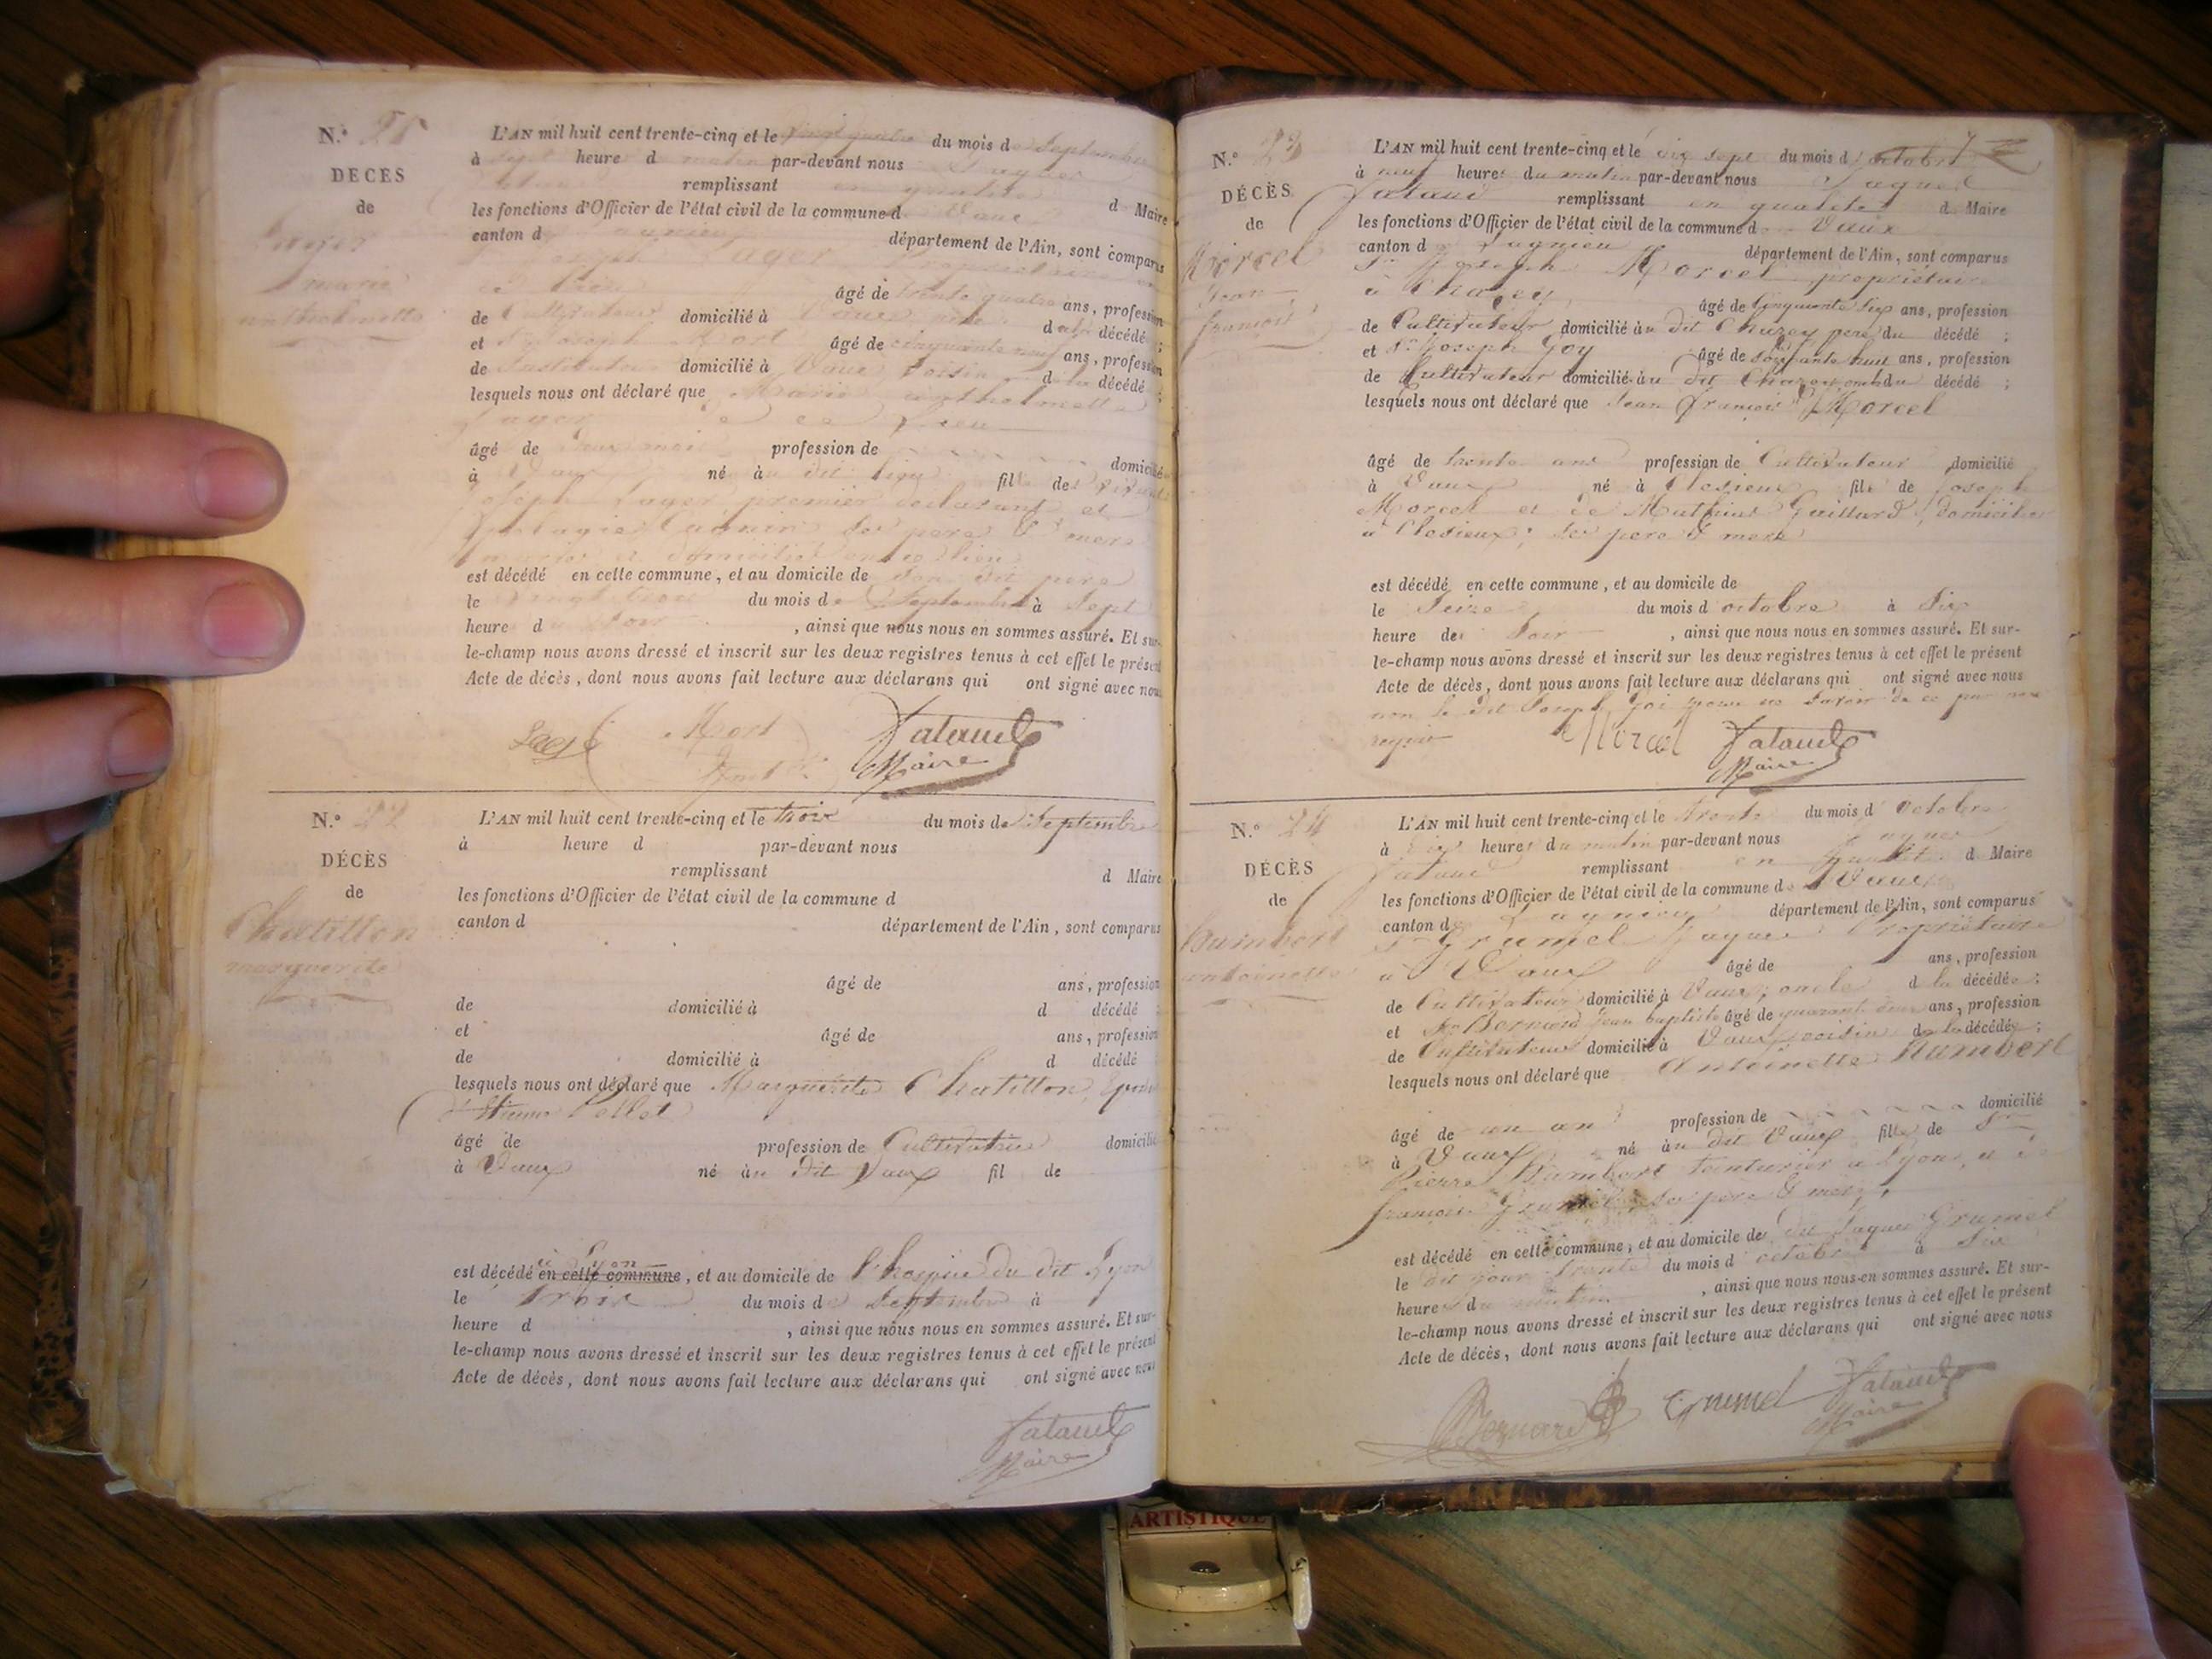 N.º 21
DÉCÈS
de
Lager
marie
anthelmette
L'AN mil huit cent trente-cinq et le vingt quatre du mois de Septembre
à sept heure du matin par-devant nous Jaques
remplissant en qualité d Maire
les fonctions d'Officier de l'état civil de la commune d Vaux
canton d Lagnieu département de l'Ain, sont comparus
Joseph Lager propriétaire en
ce lieu âgé de trente quatre ans, profession
de Cultivateur domicilié à Vaux père d décédé ;
et Sr Joseph Mort âgé de cinquante neuf ans, profession
de Instituteur domicilié à Vaux voisin de la décédé ;
lesquels nous ont déclaré que Marie anthelmette
Lager de ce lieu
âgé de deux mois profession de domicilié
à Vaux né à u dit lieu fill de
Joseph Lager, premier déclarant et
ses pere & mere
mariés et domiciliés en ce lieu
est décédé en cette commune, et au domicile de son dit père
le vingt trois du mois de Septembre à Sept
heure du Soir , ainsi que nous nous en sommes assuré. Et sur-
le-champ nous avons dressé et inscrit sur les deux registres tenus à cet effet le présent
Acte de décès, dont nous avons fait lecture aux déclarans qui ont signé avec nous
Mort
Maire
N.º 22
DÉCÈS
de
Chatillon
marguerite
L'AN mil huit cent trente-cinq et le trois du mois de Septembre
à heure d par-devant nous
remplissant d Maire
les fonctions d'Officier de l'état civil de la commune d
canton d département de l'Ain, sont comparus
âgé de ans, profession
de domicilié à d décédé ;
et âgé de ans, profession
de domicilié à d décédé
lesquels nous ont déclaré que Marguerite Chatillon,
Pellet
âgé de profession de Cultivatrice domicilié
à Vaux né à u dit Vaux fil de
à Lyon
est décédé en cette commune, et au domicile de l'hospice du dit Lyon
le trois du mois de Septembre à
heure d , ainsi que nous nous en sommes assuré. Et sur-
le-champ nous avons dressé et inscrit sur les deux registres tenus à cet effet le présent
Acte de décès, dont nous avons fait lecture aux déclarans qui ont signé avec nous
Maire
N.º 23
DÉCÈS
de
Morcel
Jean
françois
L'AN mil huit cent trente-cinq et le dix sept du mois d octobre
à neuf heures du matin par-devant nous Jaques
remplissant en qualité d Maire
les fonctions d'Officier de l'état civil de la commune d Vaux
canton d Lagnieu département de l'Ain, sont comparus
Sr Joseph Morcel propriétaire
à Chazey âgé de Cinquante six ans, profession
de Cultivateur domicilié à u dit Chazey pere du décédé ;
et Sr Joseph Goy âgé de soixante huit ans, profession
de Cultivateur domicilié à u dit Chazey, oncle du décédé ;
lesquels nous ont déclaré que Jean françois Morcel
âgé de trente ans profession de Cultivateur domicilié
à Vaux né à Closieux fils de Joseph
Morcel et de Gaillard, domiciliés
à Closieux ; ses pere & mere
est décédé en cette commune, et au domicile de
le Seize du mois d octobre à Six
heure du Soir , ainsi que nous nous en sommes assuré. Et sur-
le-champ nous avons dressé et inscrit sur les deux registres tenus à cet effet le présent
Acte de décès, dont nous avons fait lecture aux déclarans qui ont signé avec nous
non le dit Joseph Goi pour ne Savoir de ce par nous
requis Morcel
Maire
N.º 24
DÉCÈS
de
humbert
antoinette
L'AN mil huit cent trente-cinq et le trente du mois d octobre
à heures du matin par-devant nous Jaques
remplissant en qualité d Maire
les fonctions d'Officier de l'état civil de la commune de Vaux
canton de Lagnieu département de l'Ain, sont comparus
Sr Grumel Jaques Propriétaire
à Vaux âgé de ans, profession
de Cultivateur domicilié à Vaux, oncle d la décédée ;
et Sr Bernard Jean baptiste âgé de quarante deux ans, profession
de Cultivateur domicilié à Vaux, voisin de la décédée ;
lesquels nous ont déclaré que Antoinette humbert
âgé de un an profession de domicilié
à Vaux né à u dit Vaux fille de Sr
Pierre Humbert teinturier à Lyon, et de
françoise Grumel ses pere & mere,
est décédé en cette commune, et au domicile de dit Jaques Grumel
le dit jour trente du mois d octobre à Six
heures du matin , ainsi que nous nous en sommes assuré. Et sur-
le-champ nous avons dressé et inscrit sur les deux registres tenus à cet effet le présent
Acte de décès, dont nous avons fait lecture aux déclarans qui ont signé avec nous
Bernard Grumel
Maire
ARTISTIQUE